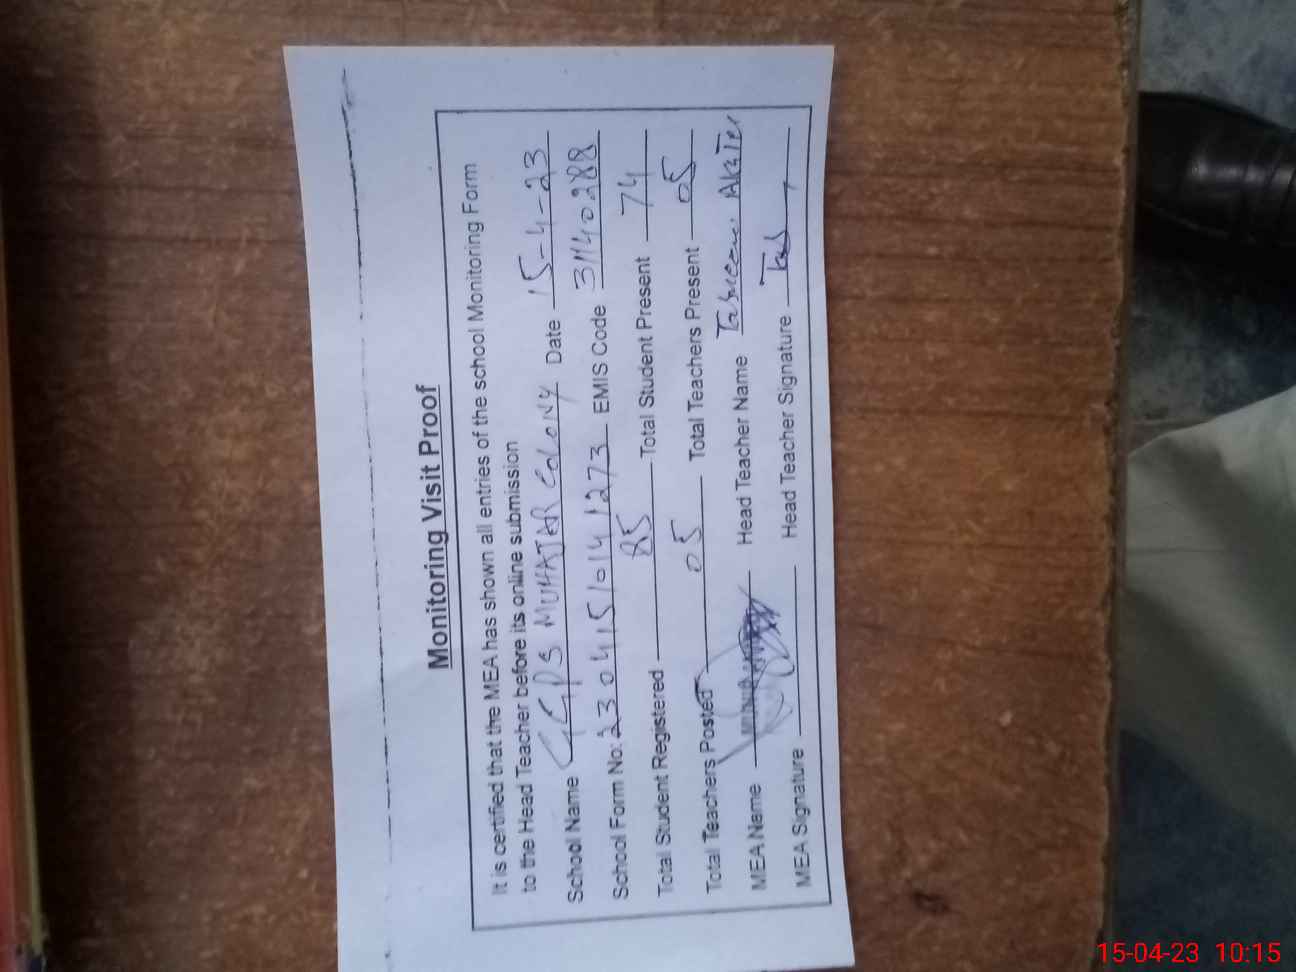 Monitoring Visit Proof
It is certified that the MEA has shown all entries of the school Monitoring Form
to the Head Teacher before its online submission
School Name GGPS MUHAJAR COLONY Date 15-4-23
School Form No: 23041510141273 EMIS Code 31140288
Total Student Registered 85 Total Student Present 74
Total Teachers Posted 05 Total Teachers Present 05
MEA Name Head Teacher Name Tasneem Akhter
MEA Signature Head Teacher Signature
15-04-23 10:15